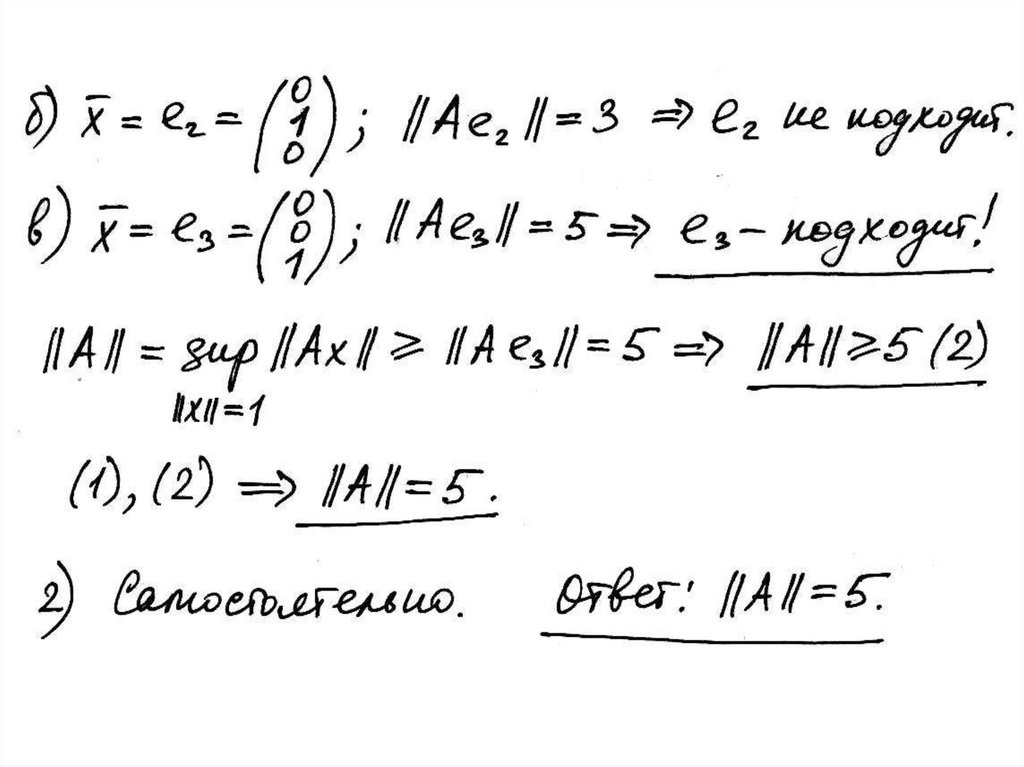 б) x̄ = e₂ = (0 1 0); ||Ae₂|| = 3 ⇒ e₂ не подходит.
в) x̄ = e₃ = (0 0 1); ||Ae₃|| = 5 ⇒ e₃ – подходит!
||A|| = sup ||Ax|| ≥ ||Ae₃|| = 5 ⇒ ||A|| ≥ 5 (2)
||x|| = 1
(1), (2) ⇒ ||A|| = 5.
2) Самостоятельно. Ответ: ||A|| = 5.